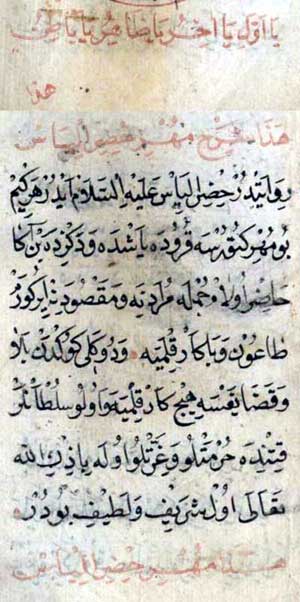 يا اول يا آخر يا ظاهر يا باطن
هذا
هذا شرح مهر خضر الياس
روايتدر خضر الياس عليه السلام ايدر هركيم
بو مهر كتورسه قروده ياشده و دكزده بن اكا
حاضر اولام جمله مرادينه و مقصودينه ايركورم
طاعون و با كار قلميه و دوكلى كوكدن بلا
و قضا نفسه هيچ كار قلميه و اولو سلطانلر
قتنده حرمتلو و عزتلو اوله باذن الله
تعالى اول شريف و لطيف بودر
هذا مهر خضر الياس